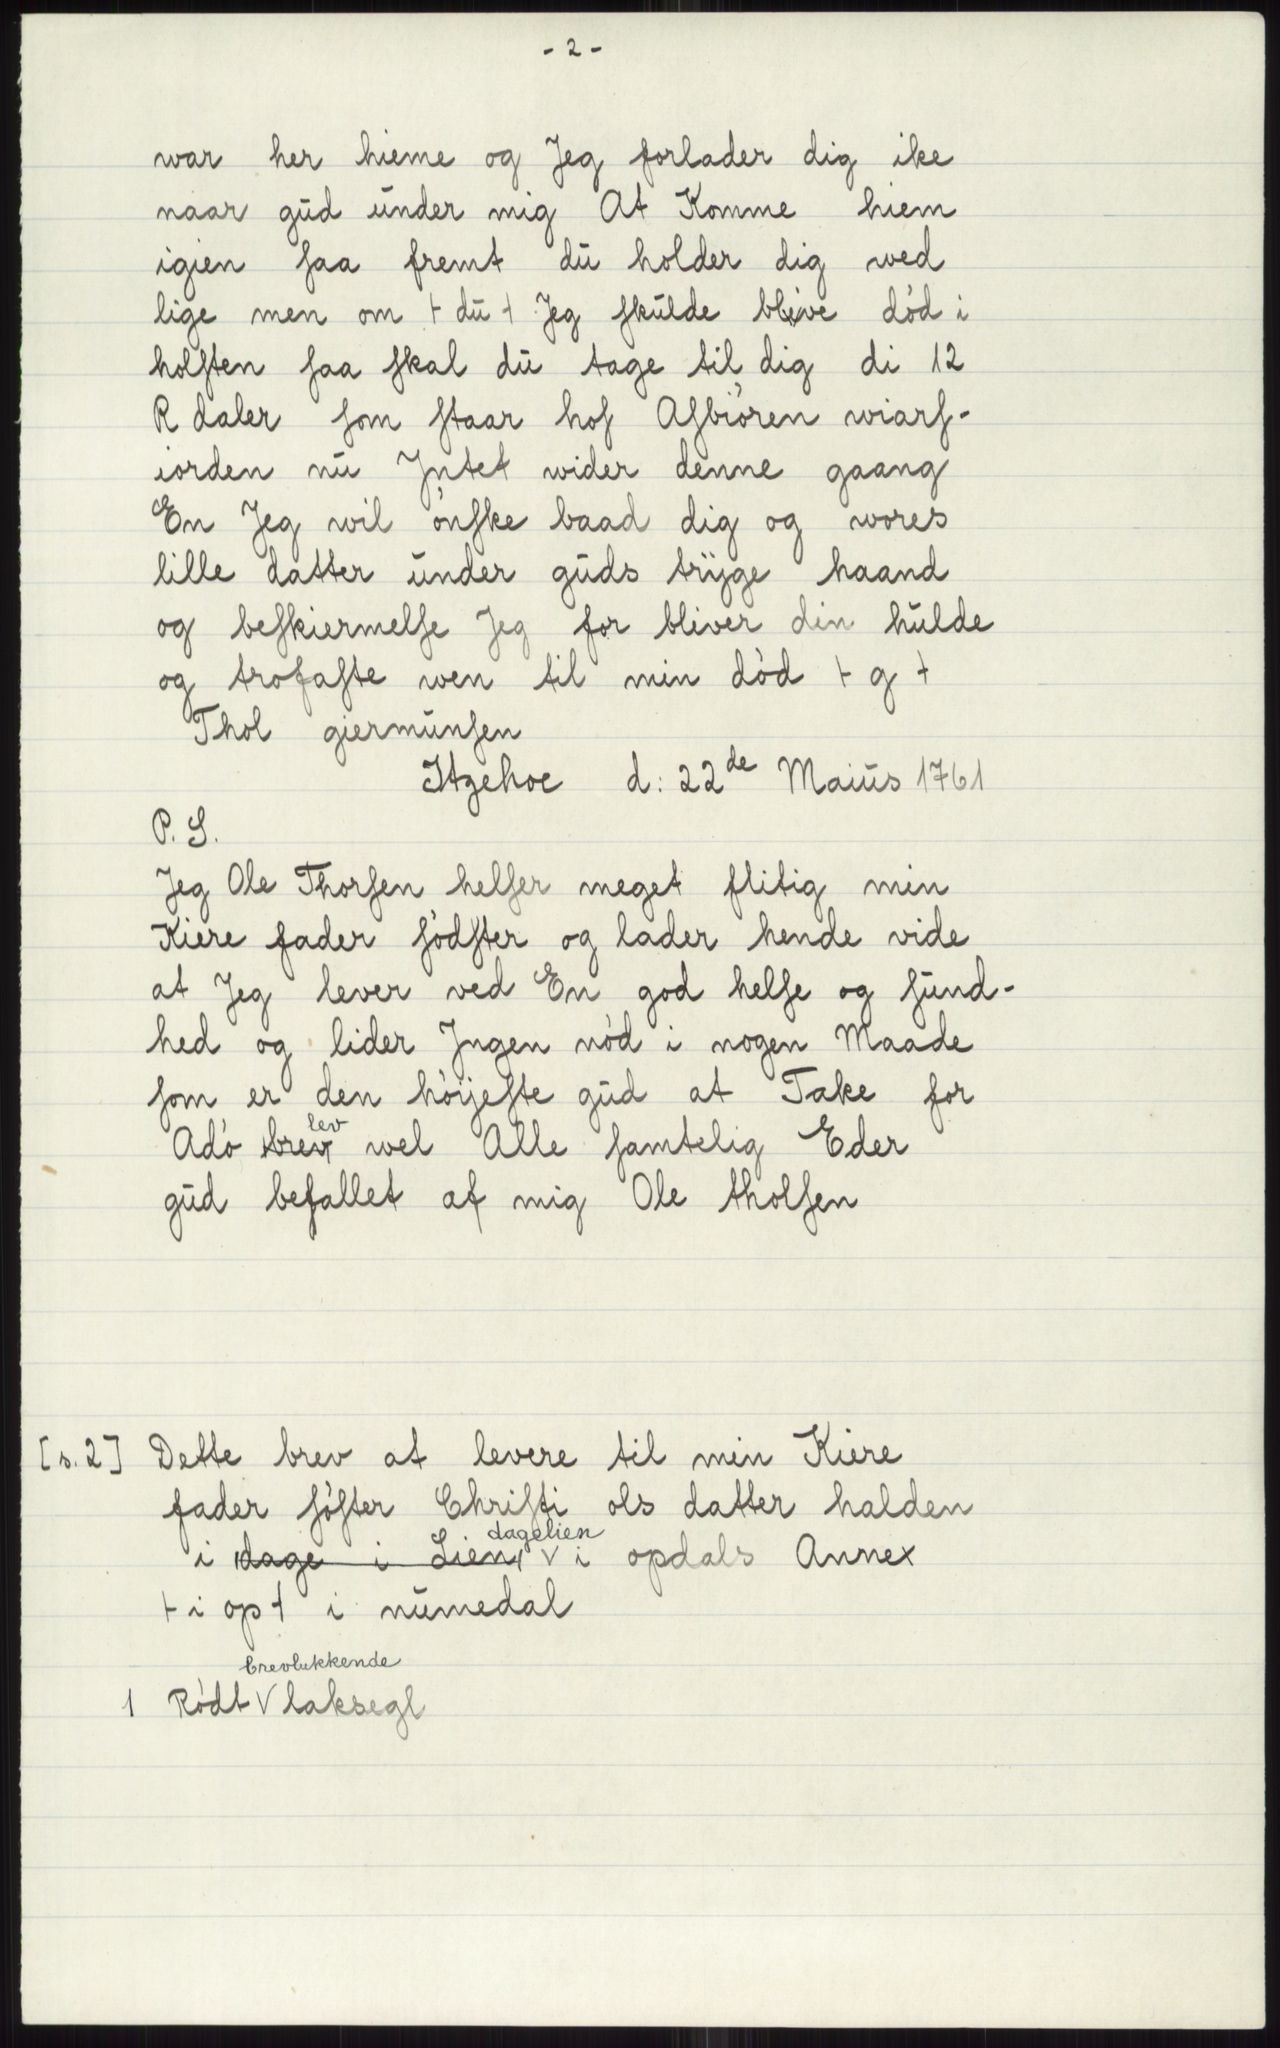 - 2 -
war her hieme og Jeg forlader dig ike
naar gud under mig At Komme hiem
igien saa fremt du holder dig wed
lige men om ⊦ du ⊣ Jeg skulde blive död i
holsten saa skal du tage til dig di 12
R daler som staar hos Asbiören wiars-
iorden nu Jntet wider denne gaang
En Jeg wil önske baad dig og wores
lille datter under guds trÿge haand
og beskiermelse Jeg for bliver din hulde
og trofaste wen til min död ⊦ g ⊣
Thol giermunsen
Itzehoe d: 22de Maius 1761
P. S.
Jeg Ole Thorsen helser meget flitig min
Kiere fader södster og lader hende vide
at Jeg lever ved En god helse og sund-
hed og lider Jngen nöd i nogen Maade
som er den höijeste gud at Take for
Adö brev lev wel Alle samtelig Eder
gud befallet af mig Ole tholsen
[s. 2] Dette brev at levere til min Kiere
fader söster Christi ols datter halden
i dage i Lien dagelien i opdals Annex
⊦ i op ⊣ i numedal
1 Rödt brevlukkende laksegl